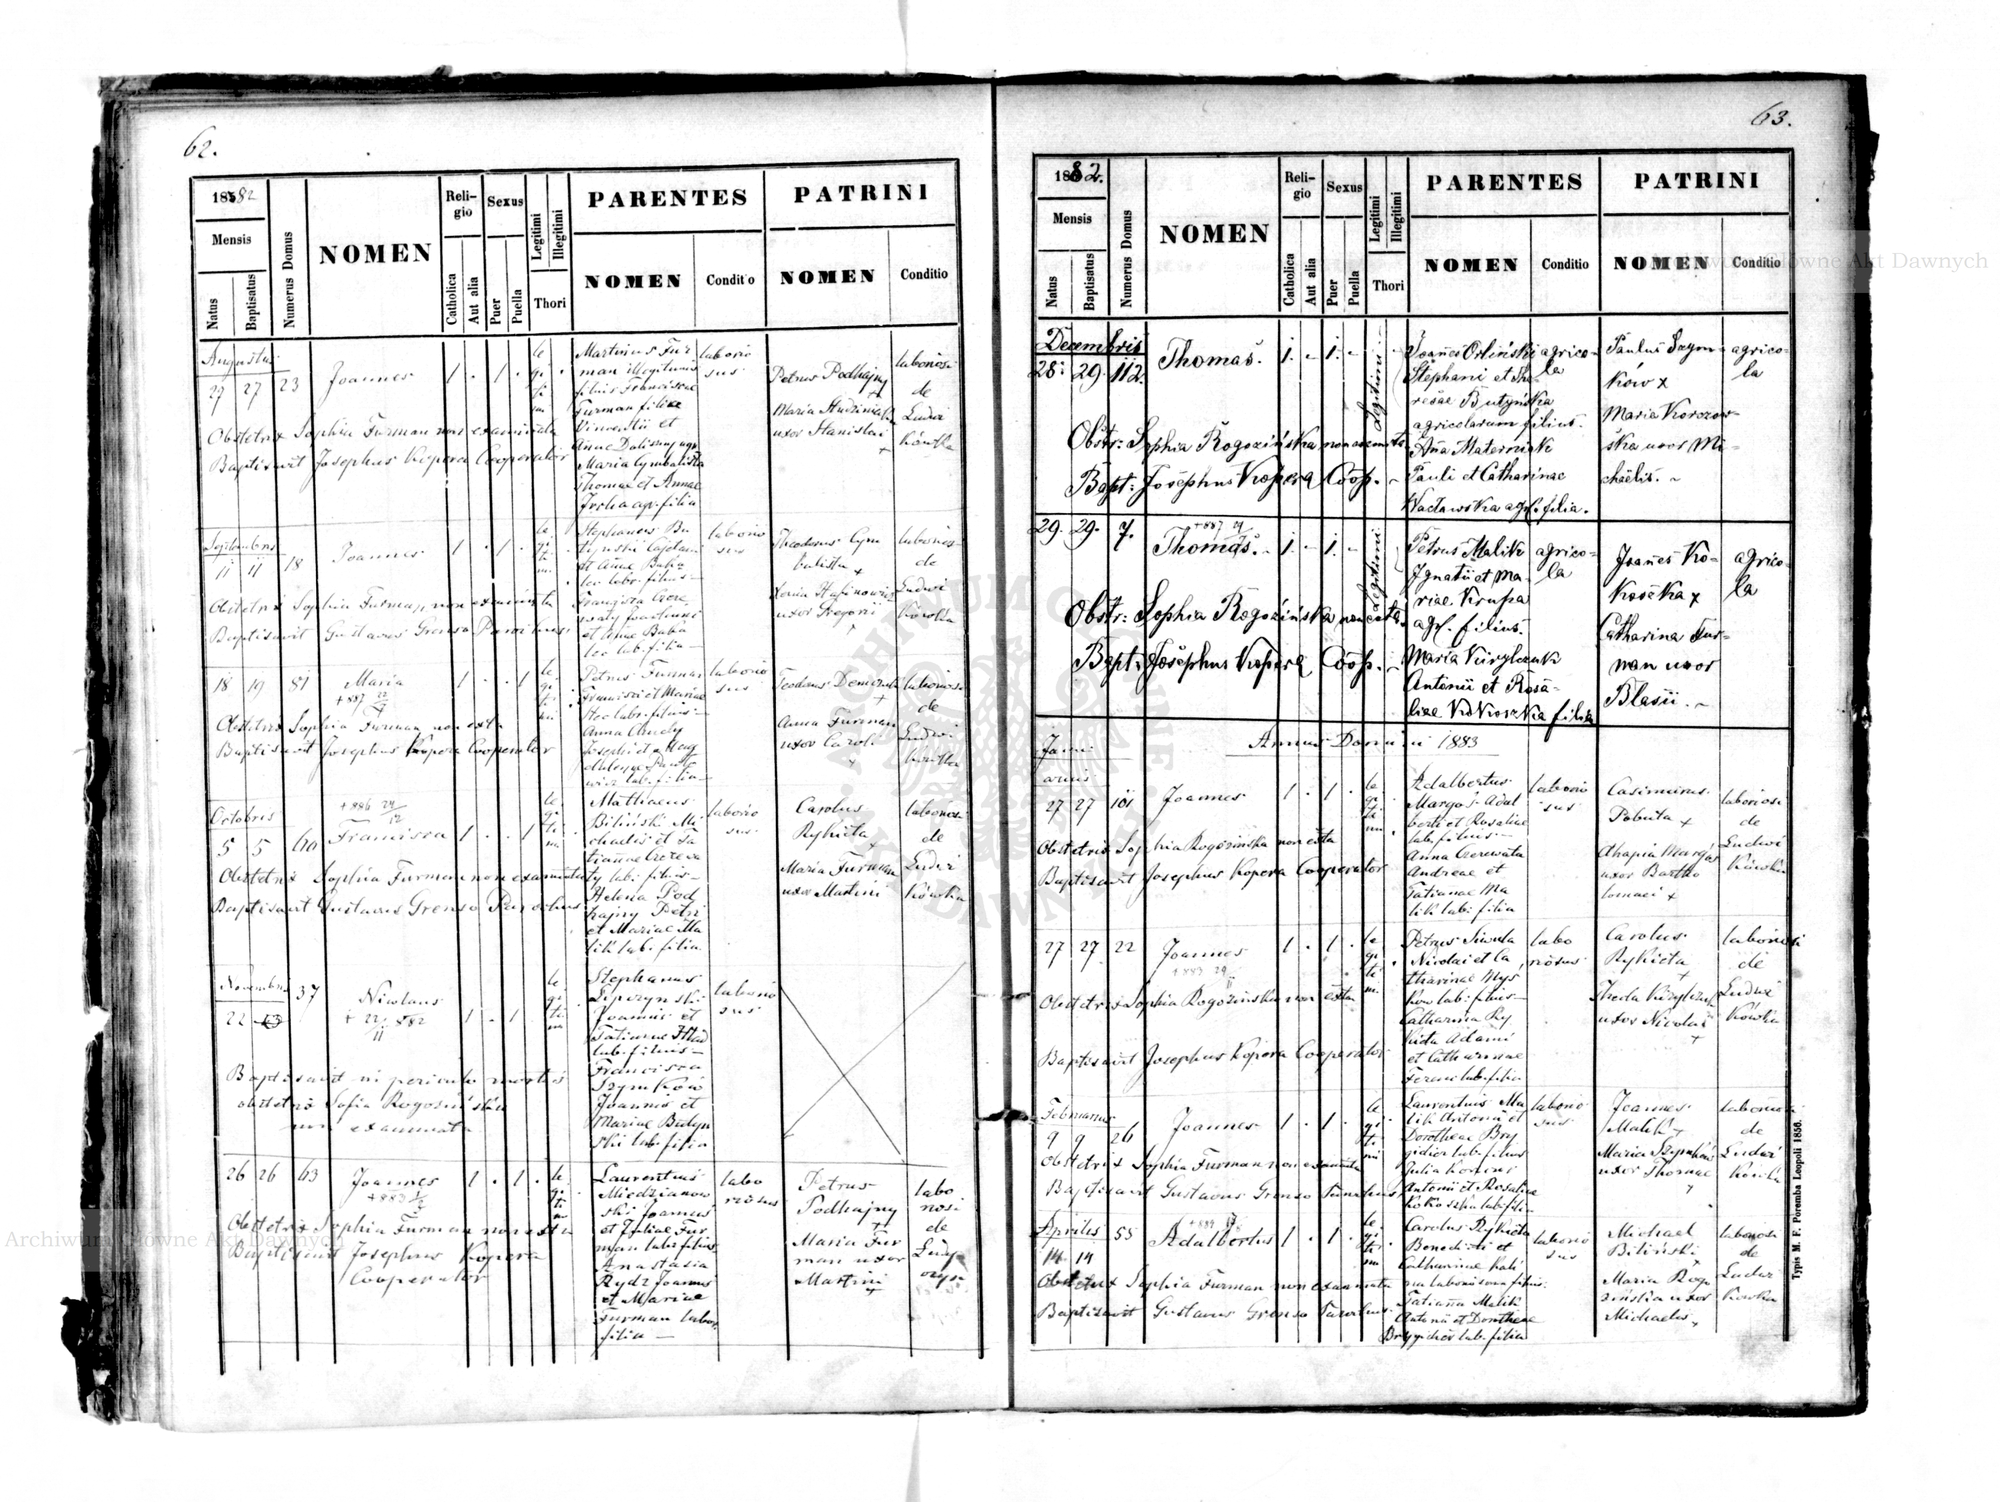 62.
1882
Mensis
Natus
Baptisatus
Numerus Domus
NOMEN
Religio
Catholica
Aut alia
Sexus
Puer
Puella
Legitimi
Illegitimi
Thori
PARENTES
NOMEN
Conditio
PATRINI
NOMEN
Conditio
Augustus
27 27 23 Joannes 1 . 1 .
legitimi
Martinus Fur
man illegitimus
filius Franciscae
Furman filiae
Vincentii et
Annae
Maria Cymbalista
Thomae et Annae
filia
laborio
sus
Petrus Podhajny
+
Maria
uxor Stanislai
+
laboriosi
de
Ludwi
kówka
Obstetrix Sophia Furman non examinata
Baptisavit Josephus Kopera Cooperator
Septembris
11 11 18 Joannes 1 . 1 .
legitimi
Stephanus Bu
tynski Cajetani
et Annae
lab. filius—
et Annae
lab. filia—
laborio
sus
Theodorus Cym
balista +
Xenia
uxor Gregorii
+
laboriosi
de
Ludwi
kówka
Obstetrix Sophia Furman non examinata
Baptisavit Gustavus Grenso Parochus
18 19 81 Maria 1 . . 1
+887
legitimi
Petrus Furman
Francisci et Mariae
lab. filius—
Anna
Josephi et Mag
dalenae
lab. filia—
laborio
sus
Anna Furman
uxor Caroli
+
laboriosi
de
Ludwi
kówka
Obstetrix Sophia Furman non exta
Baptisavit Josephus Kopera Cooperator
Octobris
+886 24/12
5 5 60 Francisca 1 . . 1
legitimi
Mathaeus
Biliński Mi
chaelis et Ta
tiannae Czerewa
ty lab. filius—
Helena Pod
hajny Petri
et Mariae Ma
lik lab. filia
laborio
sus
Carolus
Rykieta
+
Maria Furman
uxor Martini
laboriosi
de
Ludwi
kówka
Obstetrix Sophia Furman non examinata
Baptisavit Gustavus Grenso Parochus
Novembris
22 37 Nicolaus 1 . 1
+ 22/11 882
legitimi
Stephanus
Joannis et
Tatiannae
lab. filius—
Francisca
Szymków
Joannis et
Mariae Butyn
ski lab. filia
laborio
sus
Baptisavit in periculo mortis
obstetrix Sofia Rogozińska
non examinata
26 26 63 Joannes 1 . 1 .
+883
legitimi
Laurentius
Miedzianow
ski Joannis
et Juliae Fur
man lab. filius
Anastasia
Rydz Joannis
et Mariae
Furman labor.
filia —
labo
riosus
Petrus
Podhajny
+
Maria Fur
man uxor
Martini
+
labo
riosi
de
Obstetrix Sophia Furman non exta
Baptisavit Josephus Kopera
Cooperator
63.
1882.
Mensis
Natus
Baptisatus
Numerus Domus
NOMEN
Religio
Catholica
Aut alia
Sexus
Puer
Puella
Legitimi
Illegitimi
Thori
PARENTES
NOMEN
Conditio
PATRINI
NOMEN
Conditio
Decembris
28. 29. 112. Thomas. 1. - 1. -
Legitimi
Joannes Orliński
Stephani et The
resae Butyńska
agricolarum filius.
Anna Materniak
Pauli et Catharinae
Wacławska agr. filia.
agrico-
la
Paulus Szym-
ków x
Maria Korczow-
ska uxor Mi-
chaëlis.
agrico-
la
Obstr: Sophia Rogozińska non examinata.
Bapt: Josephus Kopera Coop.
29. 29. 7. Thomas. 1. - 1. -
+887
Legitimi
Petrus Malik
Ignatii et Ma-
riae Krupa
agr. filius.
Maria Kuryłczuk
Antonii et Rosa-
liae Kokoszka filia
agrico-
la
Joannes Ko-
koszka x
Catharina Fur-
man uxor
Blasii.
agrico-
la
Obstr: Sophia Rogozińska, non exta.
Bapt: Josephus Kopera Coop.
Annus Domini 1883
Januarius
27 27 101 Joannes 1 . 1 .
legitimi
Adalbertus
Margos Adal
berti et Rosaliae
lab. filius—
Anna Czerewata
Andreae et
Tatianae Ma
lik lab. filia
laborio
sus
Casimirus
Pobuta +
Ahapia Margos
uxor Bartho
lomaei +
laboriosi
de
Ludwi
kówka
Obstetrix Sophia Rogozińska non exta
Baptisavit Josephus Kopera Cooperator
27 27 22 Joannes 1 . 1 .
+883 29/11
legitimi
Petrus Siwula
Nicolai et Ca
tharinae Mys
kow lab. filius—
Catharina Ry
kieta Adami
et Catharinae
Ferenc lab. filia
labo
riosus
Carolus
Rykieta
+
Thecla Kuryłczuk
uxor Nicolai
+
laboriosi
de
Ludwi
kówka
Obstetrix Sophia Rogozińska non exta
Baptisavit Josephus Kopera Cooperator
Februarius
9 9 26 Joannes 1 . 1 .
legitimi
Laurentius Ma
lik Antonii et
Dorotheae Bry
gidior lab. filius
Julia
Antonii et Rosaliae
Kokoszka lab. filia
laborio
sus
Joannes
Malik +
Maria Szymków
uxor Thomae
+
laboriosi
de
Ludwi
kówka
Obstetrix Sophia Furman non examinata
Baptisavit Gustavus Grenso Parochus
Aprilis
14 14 55 Adalbertus 1 . 1 .
legitimi
Carolus Rykieta
Benedicti et
Catharinae Kali
na laboriosorum filius.
Tatianna Malik
Antonii et Dorotheae
Brygidior lab. filia
laborio
sus
Michael
Biliński
Maria Rogo
zińska uxor
Michaelis
laboriosi
de
Ludwi
kówka
Obstetrix Sophia Furman non examinata
Baptisavit Gustavus Grenso Parochus.
Typis M. F. Poremba Leopoli 1856.
ARCHIWUM GŁÓWNE AKT DAWNYCH
Archiwum Główne Akt Dawnych